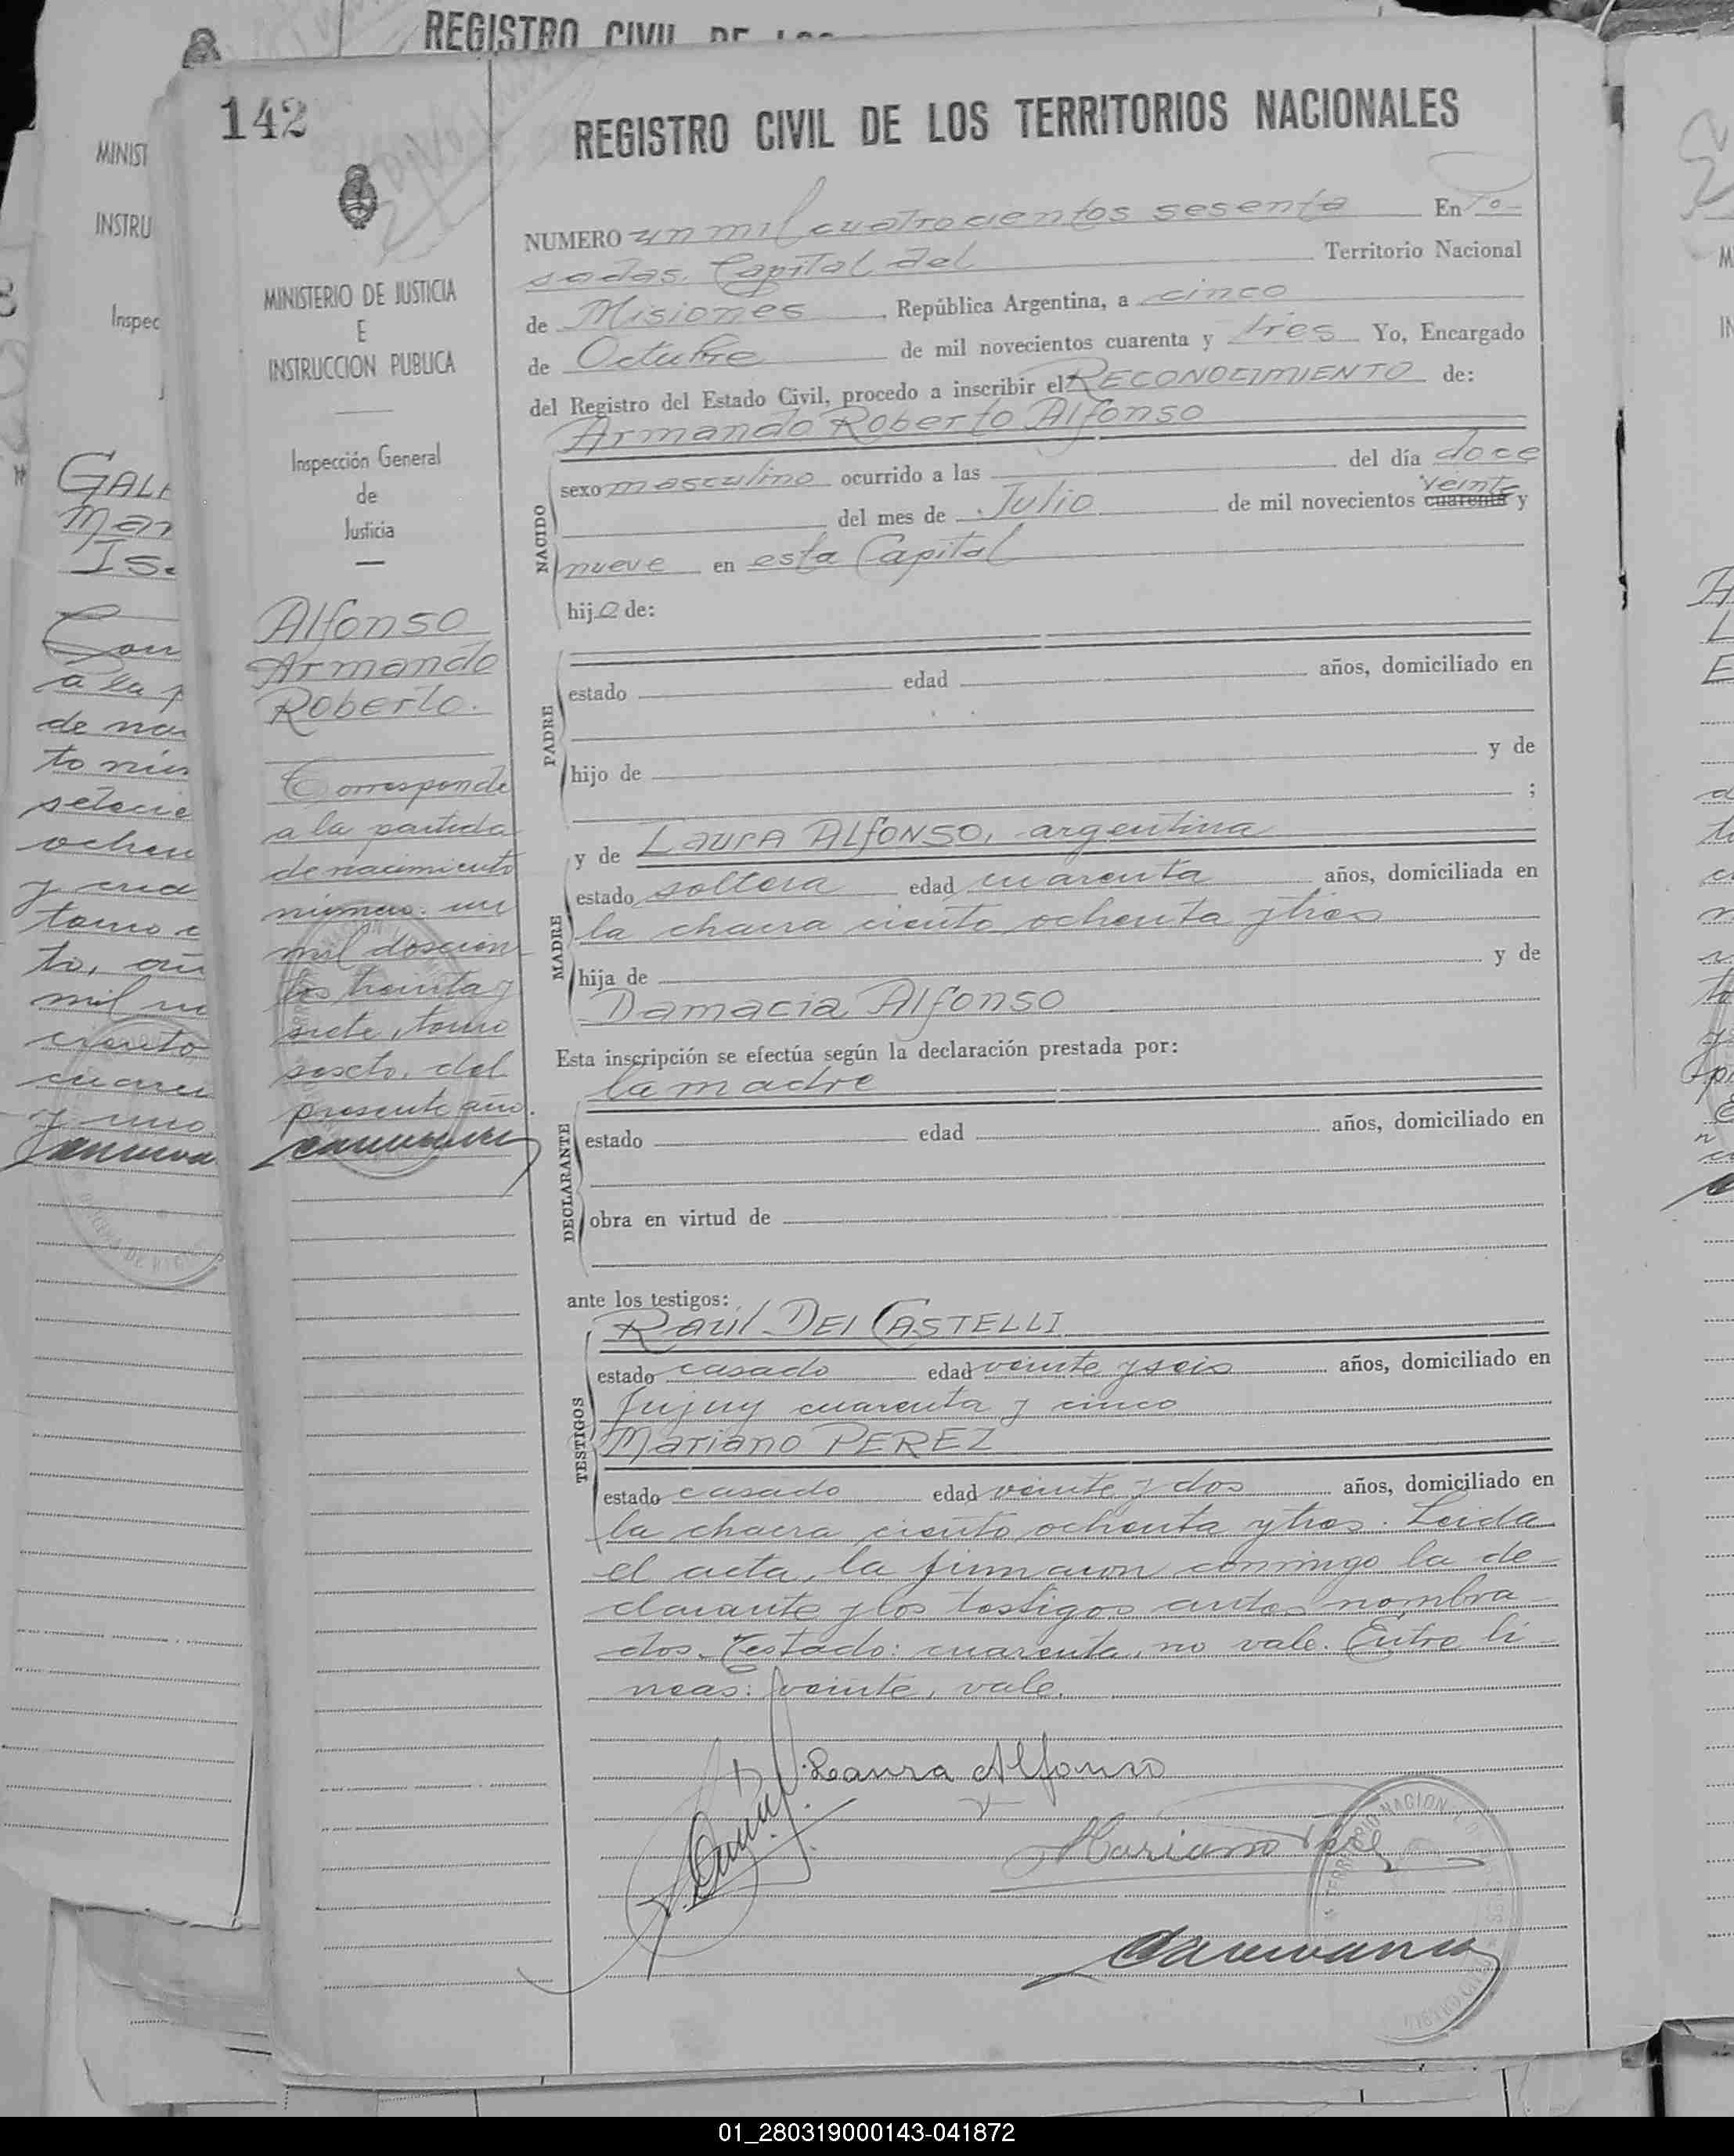 REGISTRO CIVIL DE LOS
142
REGISTRO CIVIL DE LOS TERRITORIOS NACIONALES
MINISTERIO DE JUSTICIA
E
INSTRUCCION PUBLICA
Inspección General
de
Justicia
Alfonso
Armando
Roberto.
Corresponde
a la partida
de nacimiento
número: un
mil doscien
tos treinta y
siete, tomo
sexto, del
presente año.
NUMERO un mil cuatrocientos sesenta En Po-
sadas, Capital del Territorio Nacional
de Misiones, República Argentina, a cinco
de Octubre de mil novecientos cuarenta y tres Yo, Encargado
del Registro del Estado Civil, procedo a inscribir el RECONOCIMIENTO de:
Armando Roberto Alfonso
NACIDO
sexo masculino ocurrido a las del día doce
veinte
del mes de Julio de mil novecientos cuarenta y
nueve en esta Capital
hijo de:
PADRE
estado edad años, domiciliado en
hijo de y de
;
y de Laura Alfonso, argentina
MADRE
estado soltera edad cuarenta años, domiciliada en
la chacra ciento ochenta y tres
hija de y de
Damacia Alfonso
Esta inscripción se efectúa según la declaración prestada por:
la madre
DECLARANTE
estado edad años, domiciliado en
obra en virtud de
ante los testigos:
Raúl DEI CASTELLI
TESTIGOS
estado casado edad veinte y seis años, domiciliado en
Jujuy cuarenta y cinco
Mariano PEREZ
estado casado edad veinte y dos años, domiciliado en
la chacra ciento ochenta y tres. Leida
el acta, la firmaron conmigo la de-
clarante y los testigos antes nombra-
dos. Testado: cuarenta, no vale. Entre lí-
neas: veinte, vale.
Laura Alfonso
Mariano Perez
01_280319000143-041872